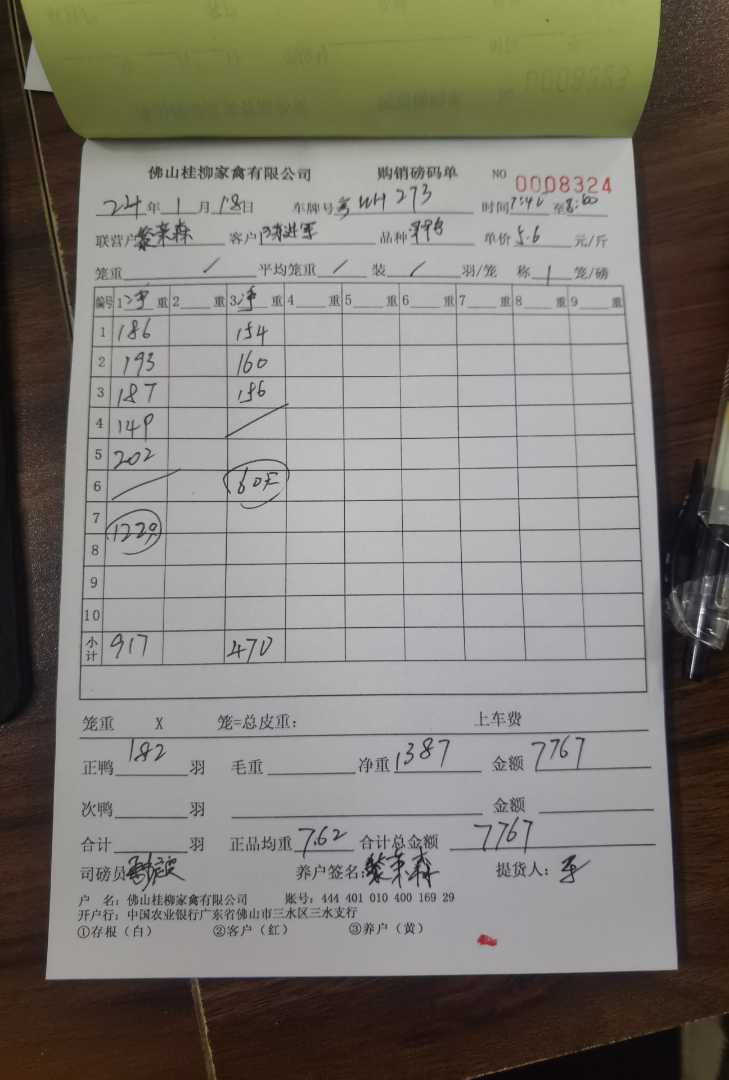 佛山桂柳家禽有限公司 购销磅码单 NO 0008324
24年1月18日 车牌号 WH273 时间 7:40 至 8:00
联营户 黎荣森 客户 陈进军 品种 单价 5.6 元/斤
笼重 / 平均笼重 / 装 / 羽/笼 称 1 笼/磅
编号 1净重 2 重 3净重 4 重 5 重 6 重 7 重 8 重 9 重
1 186 154
2 193 160
3 187 156
4 149 /
5 202
6 / 60天
7 1229
8
9
10
小计 917 470
笼重 X 笼=总皮重: 上车费
正鸭 182 羽 毛重 净重 1387 金额 7767
次鸭 羽 金额
合计 羽 正品均重 7.62 合计总金额 7767
司磅员 养户签名: 黎荣森 提货人:
户 名: 佛山桂柳家禽有限公司 账号: 444 401 010 400 169 29
开户行: 中国农业银行广东省佛山市三水区三水支行
①存根(白) ②客户(红) ③养户(黄)